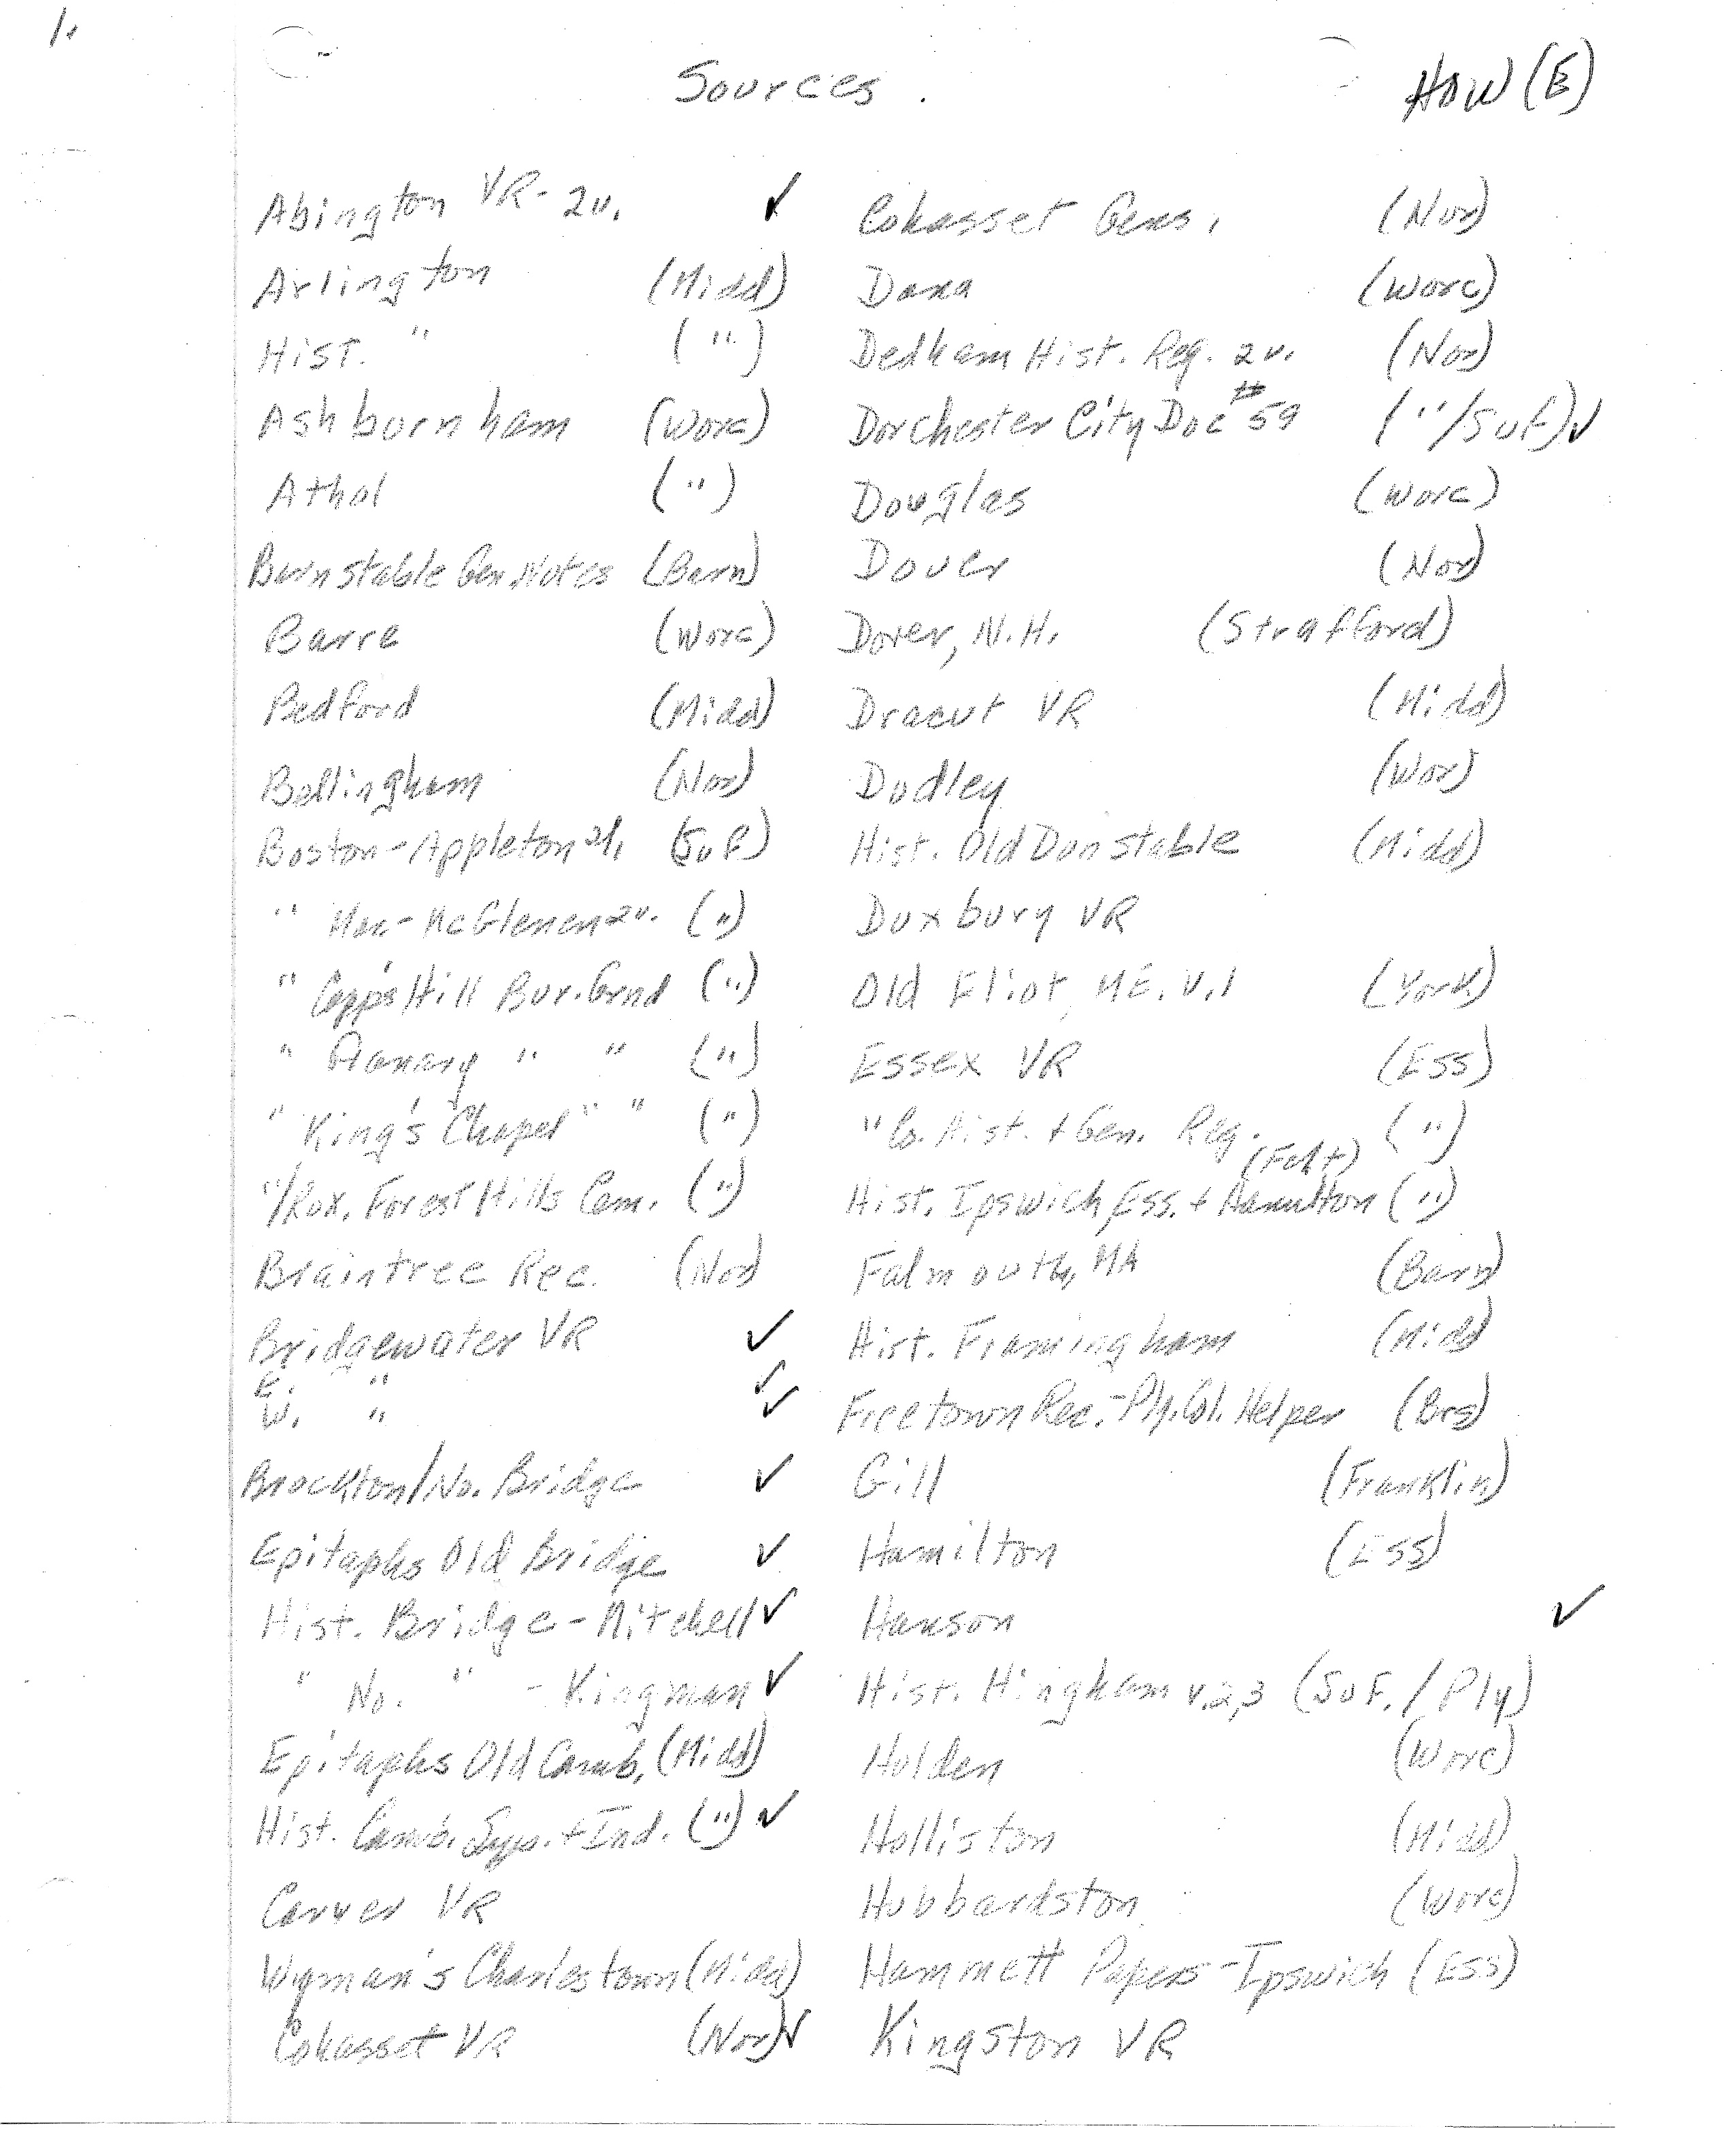 1.
Sources. HOW (E)
Abington VR- 2v. ✓
Arlington (Midd)
Hist. " (")
Ashburnham (Worc)
Athol (")
Barnstable Gen. Notes (Barn)
Barre (Worc)
Bedford (Midd)
Bellingham (Nor)
Boston-Appleton (Suf)
" Mar-McGlenen 2v. (")
" Copp's Hill Bur. Grnd (")
" Granary " " (")
" King's Chapel " " (")
"/Rox. Forest Hills Cem. (")
Braintree Rec. (Nor)
Bridgewater VR ✓
E. " ✓
W. " ✓
Brockton/No. Bridge ✓
Epitaphs Old Bridge ✓
Hist. Bridge-Mitchell ✓
" No. " - Kingman ✓
Epitaphs Old Camb. (Midd)
Hist. Camb. Sup. + Ind. (") ✓
Carver VR
Wyman's Charlestown (Midd)
Cohasset VR (Nor) ✓
Cohasset Gens. (Nor)
Dana (Worc)
Dedham Hist. Reg. 2v. (Nor)
Dorchester City Doc #59 ("/Suf) ✓
Douglas (Worc)
Dover (Nor)
Dover, N.H. (Strafford)
Dracut VR (Midd)
Dudley (Wor)
Hist. Old Dunstable (Midd)
Duxbury VR
Old Eliot, ME. v.1 (York)
Essex VR (Ess)
" Co. Hist. + Gen. Reg. (")
Hist. Ipswich, Ess. + Hamilton (Felt) (")
Falmouth, MA (Barn)
Hist. Framingham (Midd)
Freetown Rec.-Ply. Col. Helper (Brs)
Gill (Franklin)
Hamilton (Ess)
Hanson ✓
Hist. Hingham v.2,3 (Suf./Ply)
Holden (Worc)
Holliston (Midd)
Hubbardston (Worc)
Hammett Papers-Ipswich (Ess)
Kingston VR